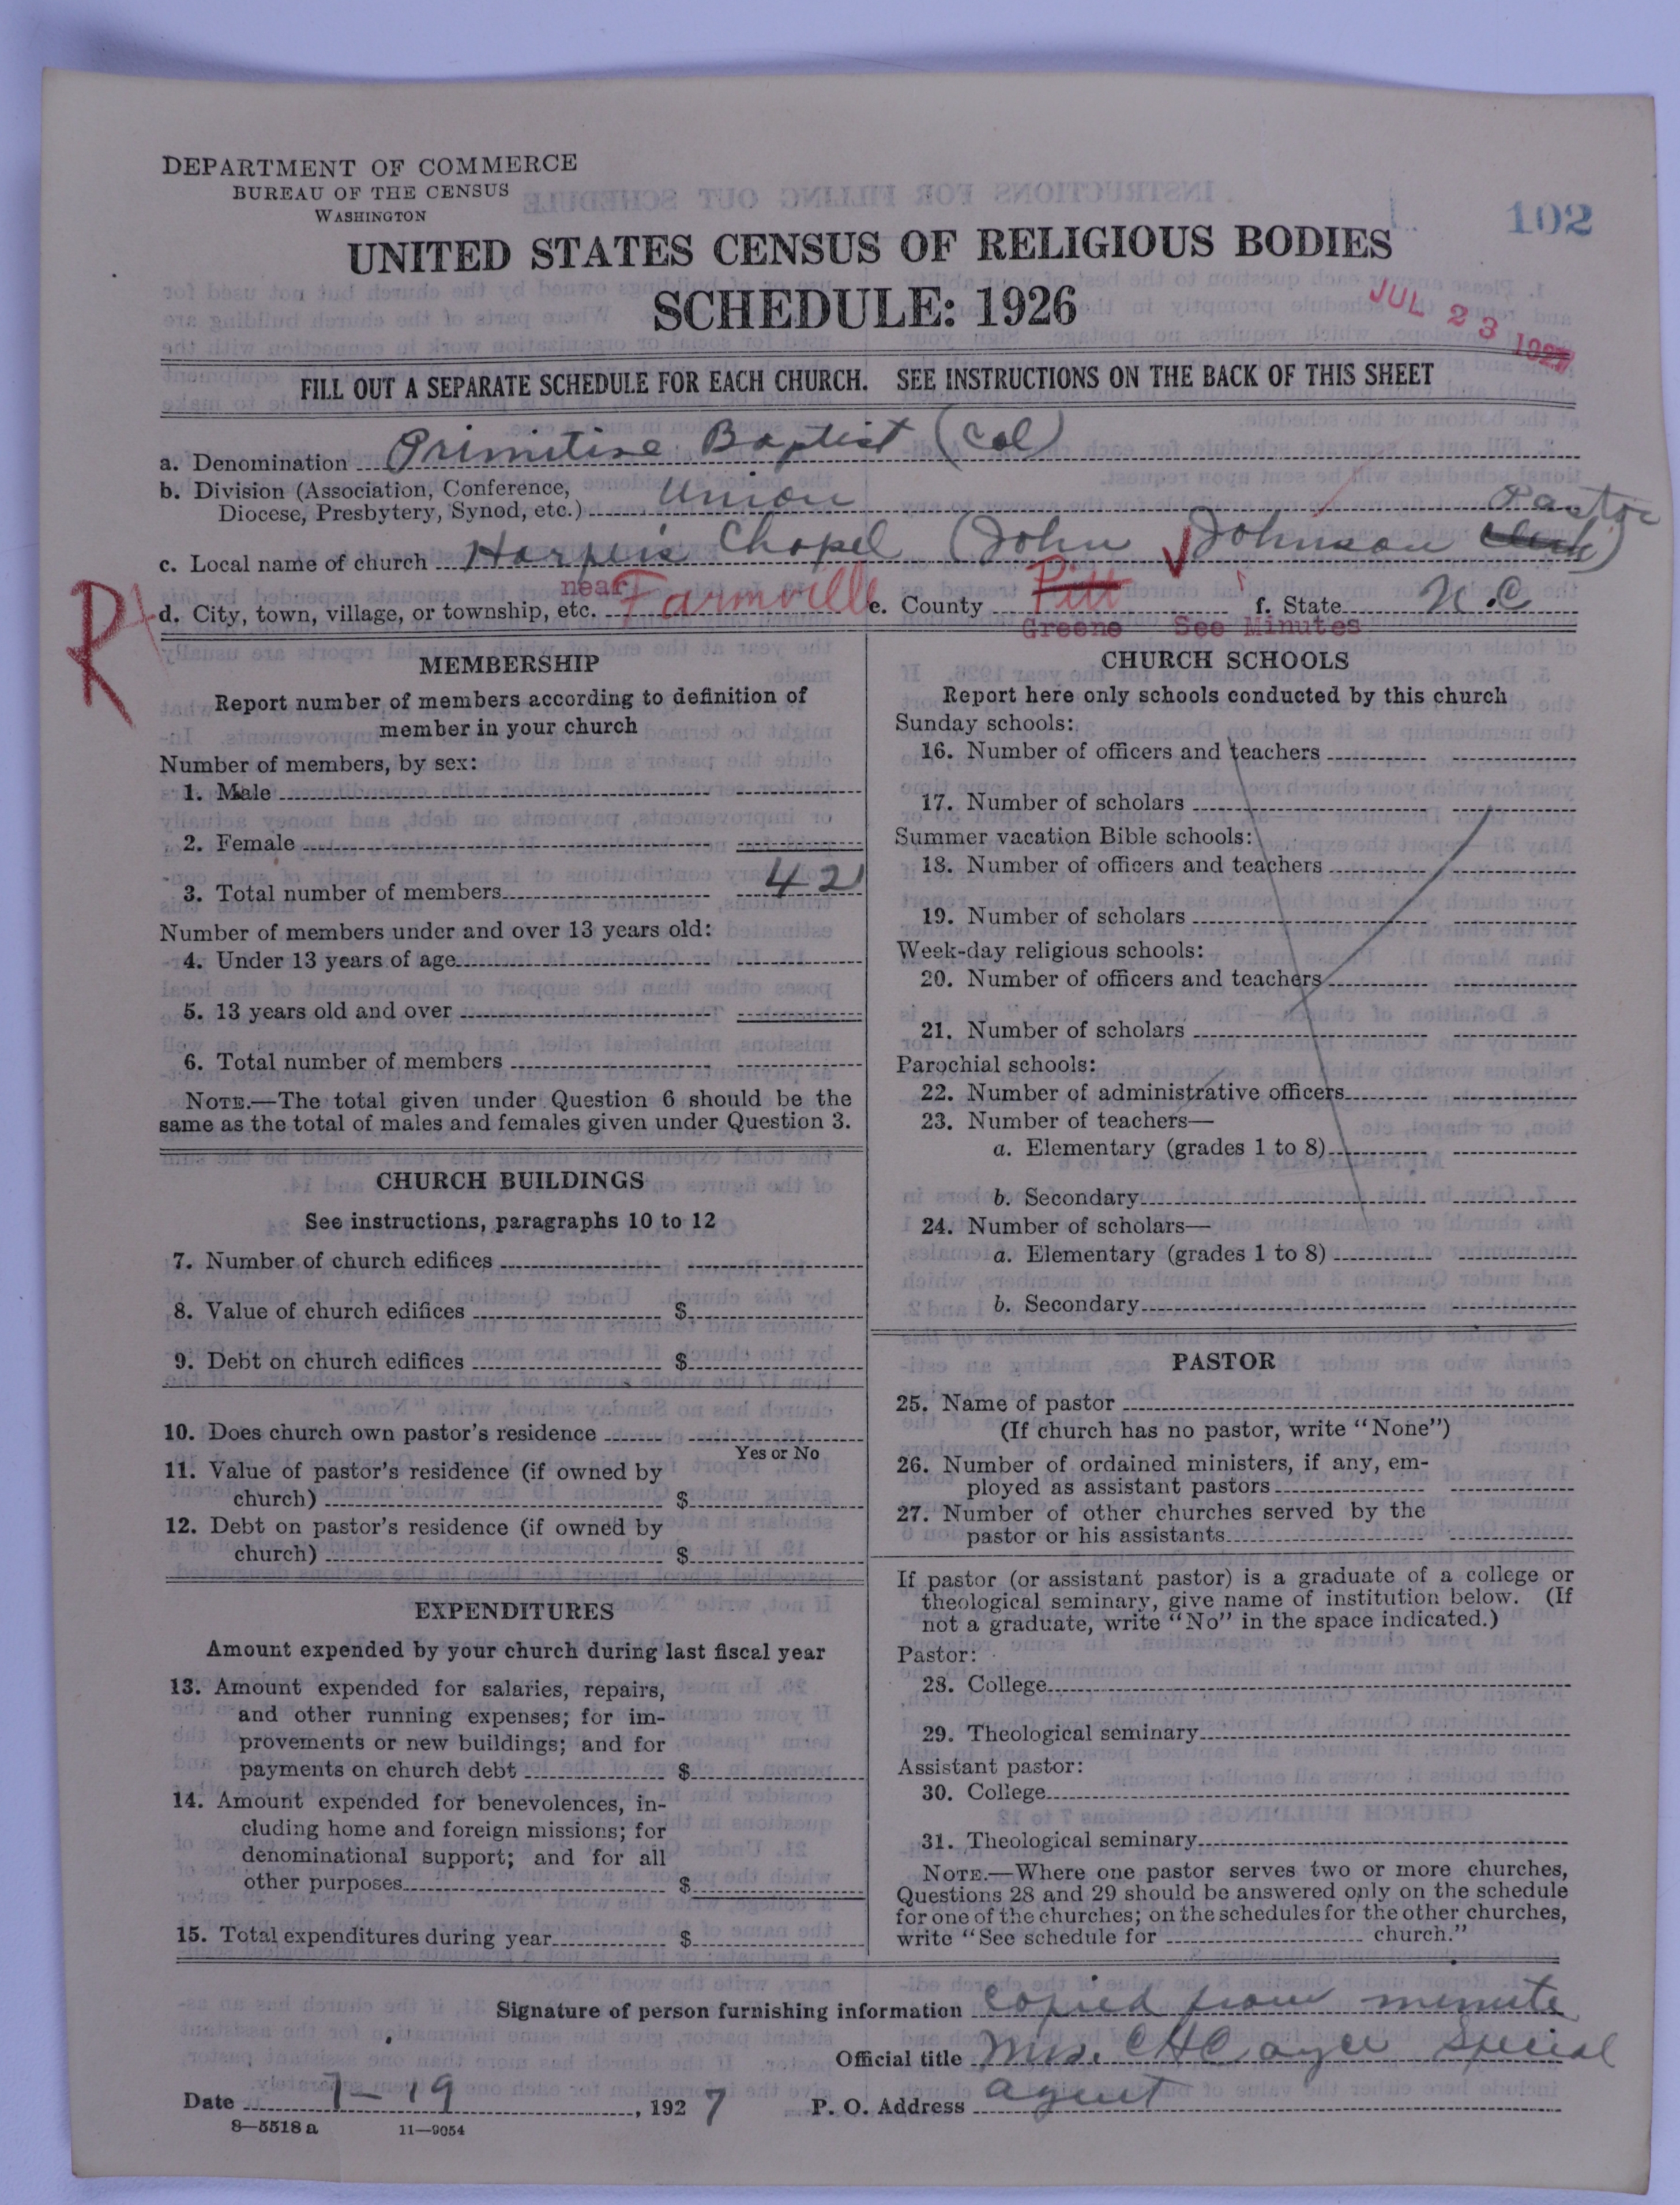 DEPARTMENT OF COMMERCE
BUREAU OF THE CENSUS
WASHINGTON
102
UNITED STATES CENSUS OF RELIGIOUS BODIES
SCHEDULE: 1926
JUL 23 1927
FILL OUT A SEPARATE SCHEDULE FOR EACH CHURCH. SEE INSTRUCTIONS ON THE BACK OF THIS SHEET
a. Denomination Primitive Baptist (Col)
b. Division (Association, Conference, Diocese, Presbytery, Synod, etc.) Union
Pastor
c. Local name of church Harpers Chapel (John Johnson Clerk)
near
d. City, town, village, or township, etc. Farmville e. County Pitt f. State N.C
Greene See Minutes
R
MEMBERSHIP
Report number of members according to definition of
member in your church
Number of members, by sex:
1. Male
2. Female
3. Total number of members 42
Number of members under and over 13 years old:
4. Under 13 years of age
5. 13 years old and over
6. Total number of members
NOTE.—The total given under Question 6 should be the
same as the total of males and females given under Question 3.
CHURCH BUILDINGS
See instructions, paragraphs 10 to 12
7. Number of church edifices
8. Value of church edifices $
9. Debt on church edifices $
10. Does church own pastor's residence
Yes or No
11. Value of pastor's residence (if owned by
church) $
12. Debt on pastor's residence (if owned by
church) $
EXPENDITURES
Amount expended by your church during last fiscal year
13. Amount expended for salaries, repairs,
and other running expenses; for im-
provements or new buildings; and for
payments on church debt $
14. Amount expended for benevolences, in-
cluding home and foreign missions; for
denominational support; and for all
other purposes $
15. Total expenditures during year $
CHURCH SCHOOLS
Report here only schools conducted by this church
Sunday schools:
16. Number of officers and teachers
17. Number of scholars
Summer vacation Bible schools:
18. Number of officers and teachers
19. Number of scholars
Week-day religious schools:
20. Number of officers and teachers
21. Number of scholars
Parochial schools:
22. Number of administrative officers
23. Number of teachers—
a. Elementary (grades 1 to 8)
b. Secondary
24. Number of scholars—
a. Elementary (grades 1 to 8)
b. Secondary
PASTOR
25. Name of pastor
(If church has no pastor, write "None")
26. Number of ordained ministers, if any, em-
ployed as assistant pastors
27. Number of other churches served by the
pastor or his assistants
If pastor (or assistant pastor) is a graduate of a college or
theological seminary, give name of institution below. (If
not a graduate, write "No" in the space indicated.)
Pastor:
28. College
29. Theological seminary
Assistant pastor:
30. College
31. Theological seminary
NOTE.—Where one pastor serves two or more churches,
Questions 28 and 29 should be answered only on the schedule
for one of the churches; on the schedules for the other churches,
write "See schedule for church."
Signature of person furnishing information copied from minute
Official title Mrs. C H Cayce Special
Date 7-19, 1927 P. O. Address agent
8—5518 a 11—9054